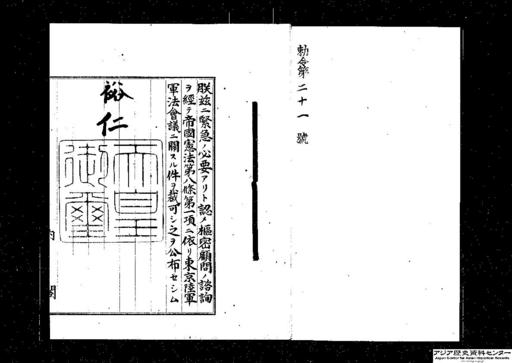 勅令第二十一號
朕玆ニ緊急ノ必要アリト認メ樞密顧問ノ諮詢
ヲ經テ帝國憲法第八條第一項ニ依リ東京陸軍
軍法會議ニ關スル件ヲ裁可シ之ヲ公布セシム
裕仁
天皇御璽
内閣
アジア歴史資料センター
Japan Center for Asian Historical Records